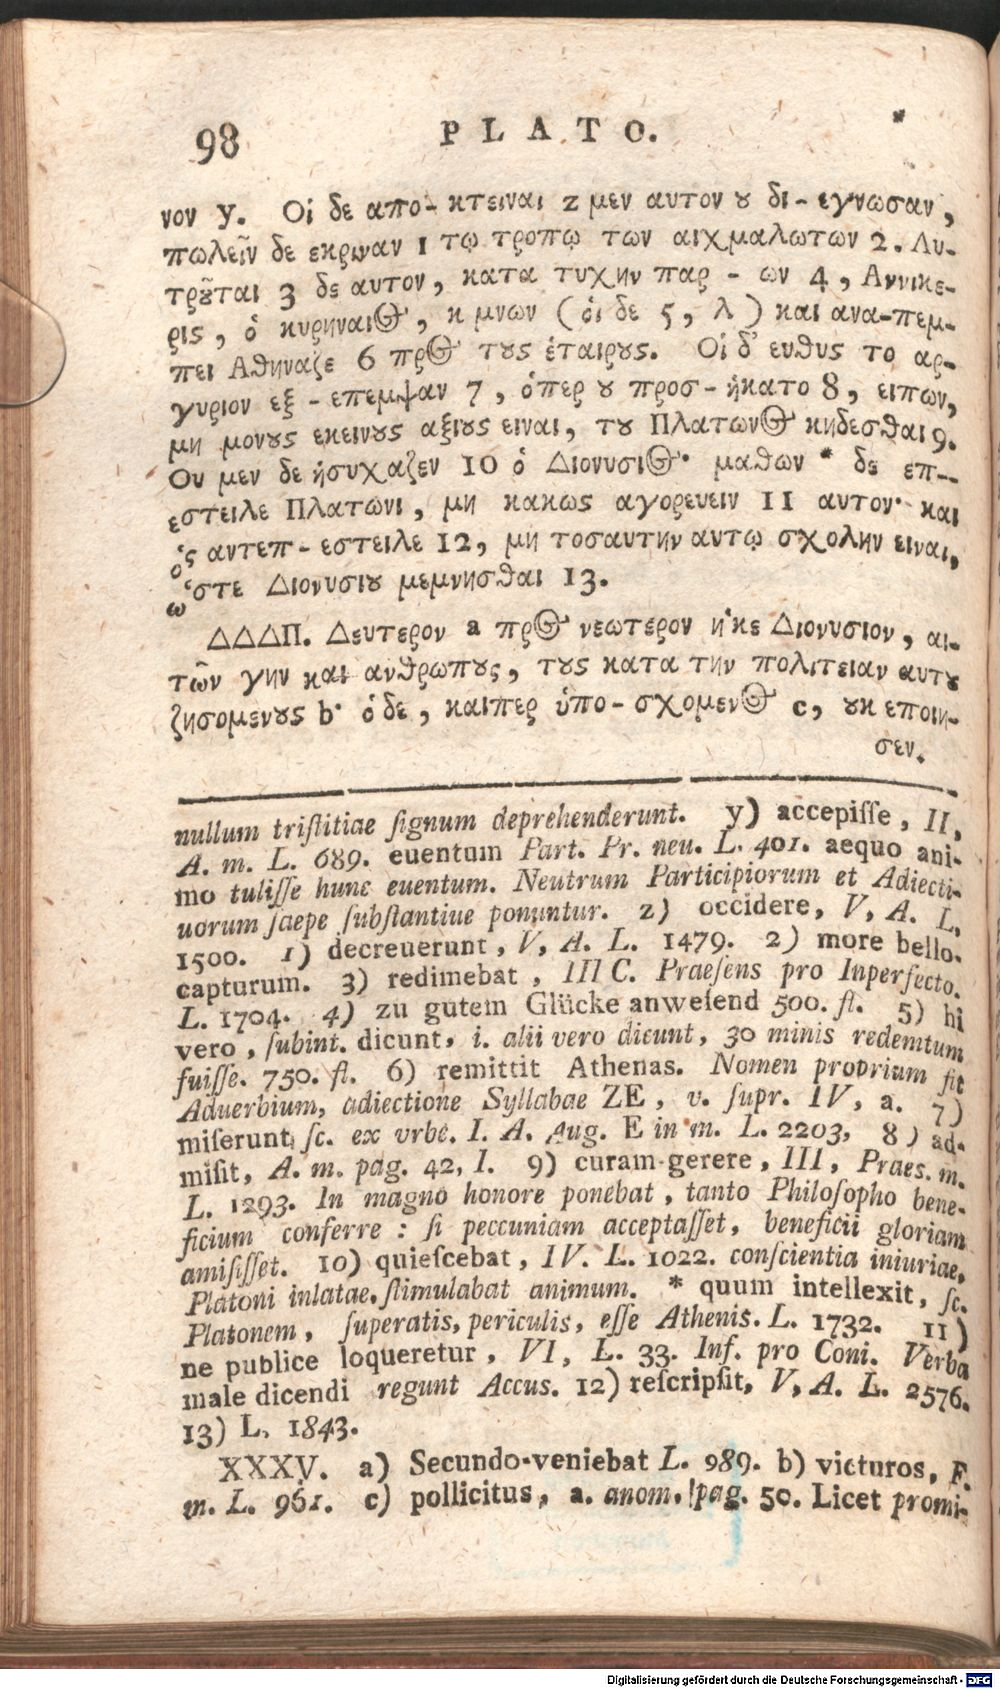 98 PLATO.
νον y. Οἱ δε απο-κτειναι z μεν αυτον ȣ δι-εγνωσαν,
πωλεῖν δε εκριναν 1 τῳ τροπῳ των αιχμαλωτων 2. Λυ-
τρȣ͂ται 3 δε αυτον, κατα τυχην παρ-ων 4, Αννικε-
ρις, ὁ κυρηναιος, κ μνων (ὁι δε 5, λ) και ανα-πεμ-
πει Αθηναζε 6 προς τȣς ἑταιρȣς. Οἱ δ' ευθυς το αρ-
γυριον εξ-επεμψαν 7, ὁπερ ȣ προσ-ήκατο 8, ειπων,
μη μονȣς εκεινȣς αξιȣς ειναι, τȣ Πλατωνος κηδεσθαι 9.
Ου μεν δε ἡσυχαζεν 10 ὁ Διονυσιος· μαθων * δε επ--
εστειλε Πλατωνι, μη κακως αγορευειν 11 αυτον· και
ὁς αντεπ-εστειλε 12, μη τοσαυτην αυτῳ σχολην ειναι,
ὡστε Διονυσιȣ μεμνησθαι 13.
ΔΔΔΠ. Δευτερον a προς νεωτερον ἡκε Διονυσιον, αι-
τῶν γην και ανθρωπȣς, τȣς κατα την πολιτειαν αυτȣ
ζησομενȣς b· ὁ δε, καιπερ ὑπο-σχομενος c, ȣκ εποιη-
σεν.
nullum tristitiae signum deprehenderunt. y) accepisse, II,
A. m. L. 689. euentum Part. Pr. neu. L. 401. aequo ani-
mo tulisse hunc euentum. Neutrum Participiorum et Adiecti-
uorum saepe substantiue ponuntur. z) occidere, V, A. L.
1500. 1) decreuerunt, V, A. L. 1479. 2) more bello.
capturum. 3) redimebat, III C. Praesens pro Inperfecto.
L. 1704. 4) zu gutem Glücke anwesend 500. fl. 5) hi
vero, subint. dicunt, i. alii vero dicunt, 30 minis redemtum
fuisse. 750. fl. 6) remittit Athenas. Nomen proprium fit
Aduerbium, adiectione Syllabae ZE, v. supr. IV, a. 7)
miserunt, sc. ex vrbe. I. A. Aug. E in m. L. 2203, 8) ad-
misit, A. m. pag. 42, l. 9) curam gerere, III, Praes. m.
L. 1293. In magno honore ponebat, tanto Philosopho bene-
ficium conferre: si peccuniam acceptasset, beneficii gloriam
amisisset. 10) quiescebat, IV. L. 1022. conscientia iniuriae,
Platoni inlatae, stimulabat animum. * quum intellexit, sc.
Platonem, superatis, periculis, esse Athenis. L. 1732. 11)
ne publice loqueretur, VI, L. 33. Inf. pro Coni. Verba
male dicendi regunt Accus. 12) rescripsit, V, A. L. 2576.
13) L. 1843.
XXXV. a) Secundo-veniebat L. 989. b) victuros, F.
m. L. 961. c) pollicitus, a. anom. pag. 50. Licet promi-
Digitalisierung gefördert durch die Deutsche Forschungsgemeinschaft - DFG